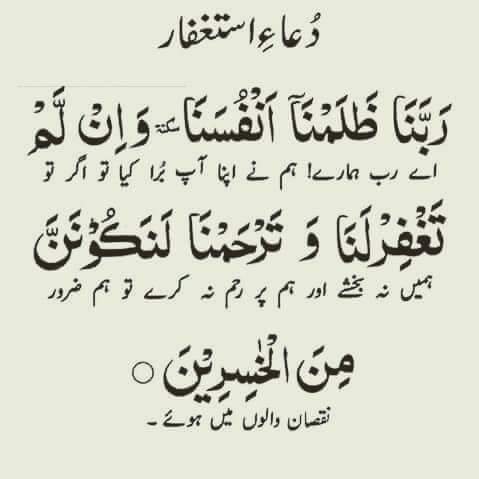 دُعاءِ استغفار
رَبَّنَا ظَلَمْنَآ اَنْفُسَنَا سكتة وَاِنْ لَّمْ
اے رب ہمارے! ہم نے اپنا آپ بُرا کیا تو اگر تو
تَغْفِرْلَنَا وَ تَرْحَمْنَا لَنَكُوْنَنَّ
ہمیں نہ بخشے اور ہم پر رحم نہ کرے تو ہم ضرور
مِنَ الْخٰسِرِيْنَ ○
نقصان والوں میں ہوئے ۔